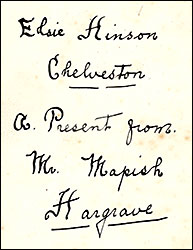 Edsie Hinson
Chelveston
A. Present from.
Mr. Mapish
Hargrave